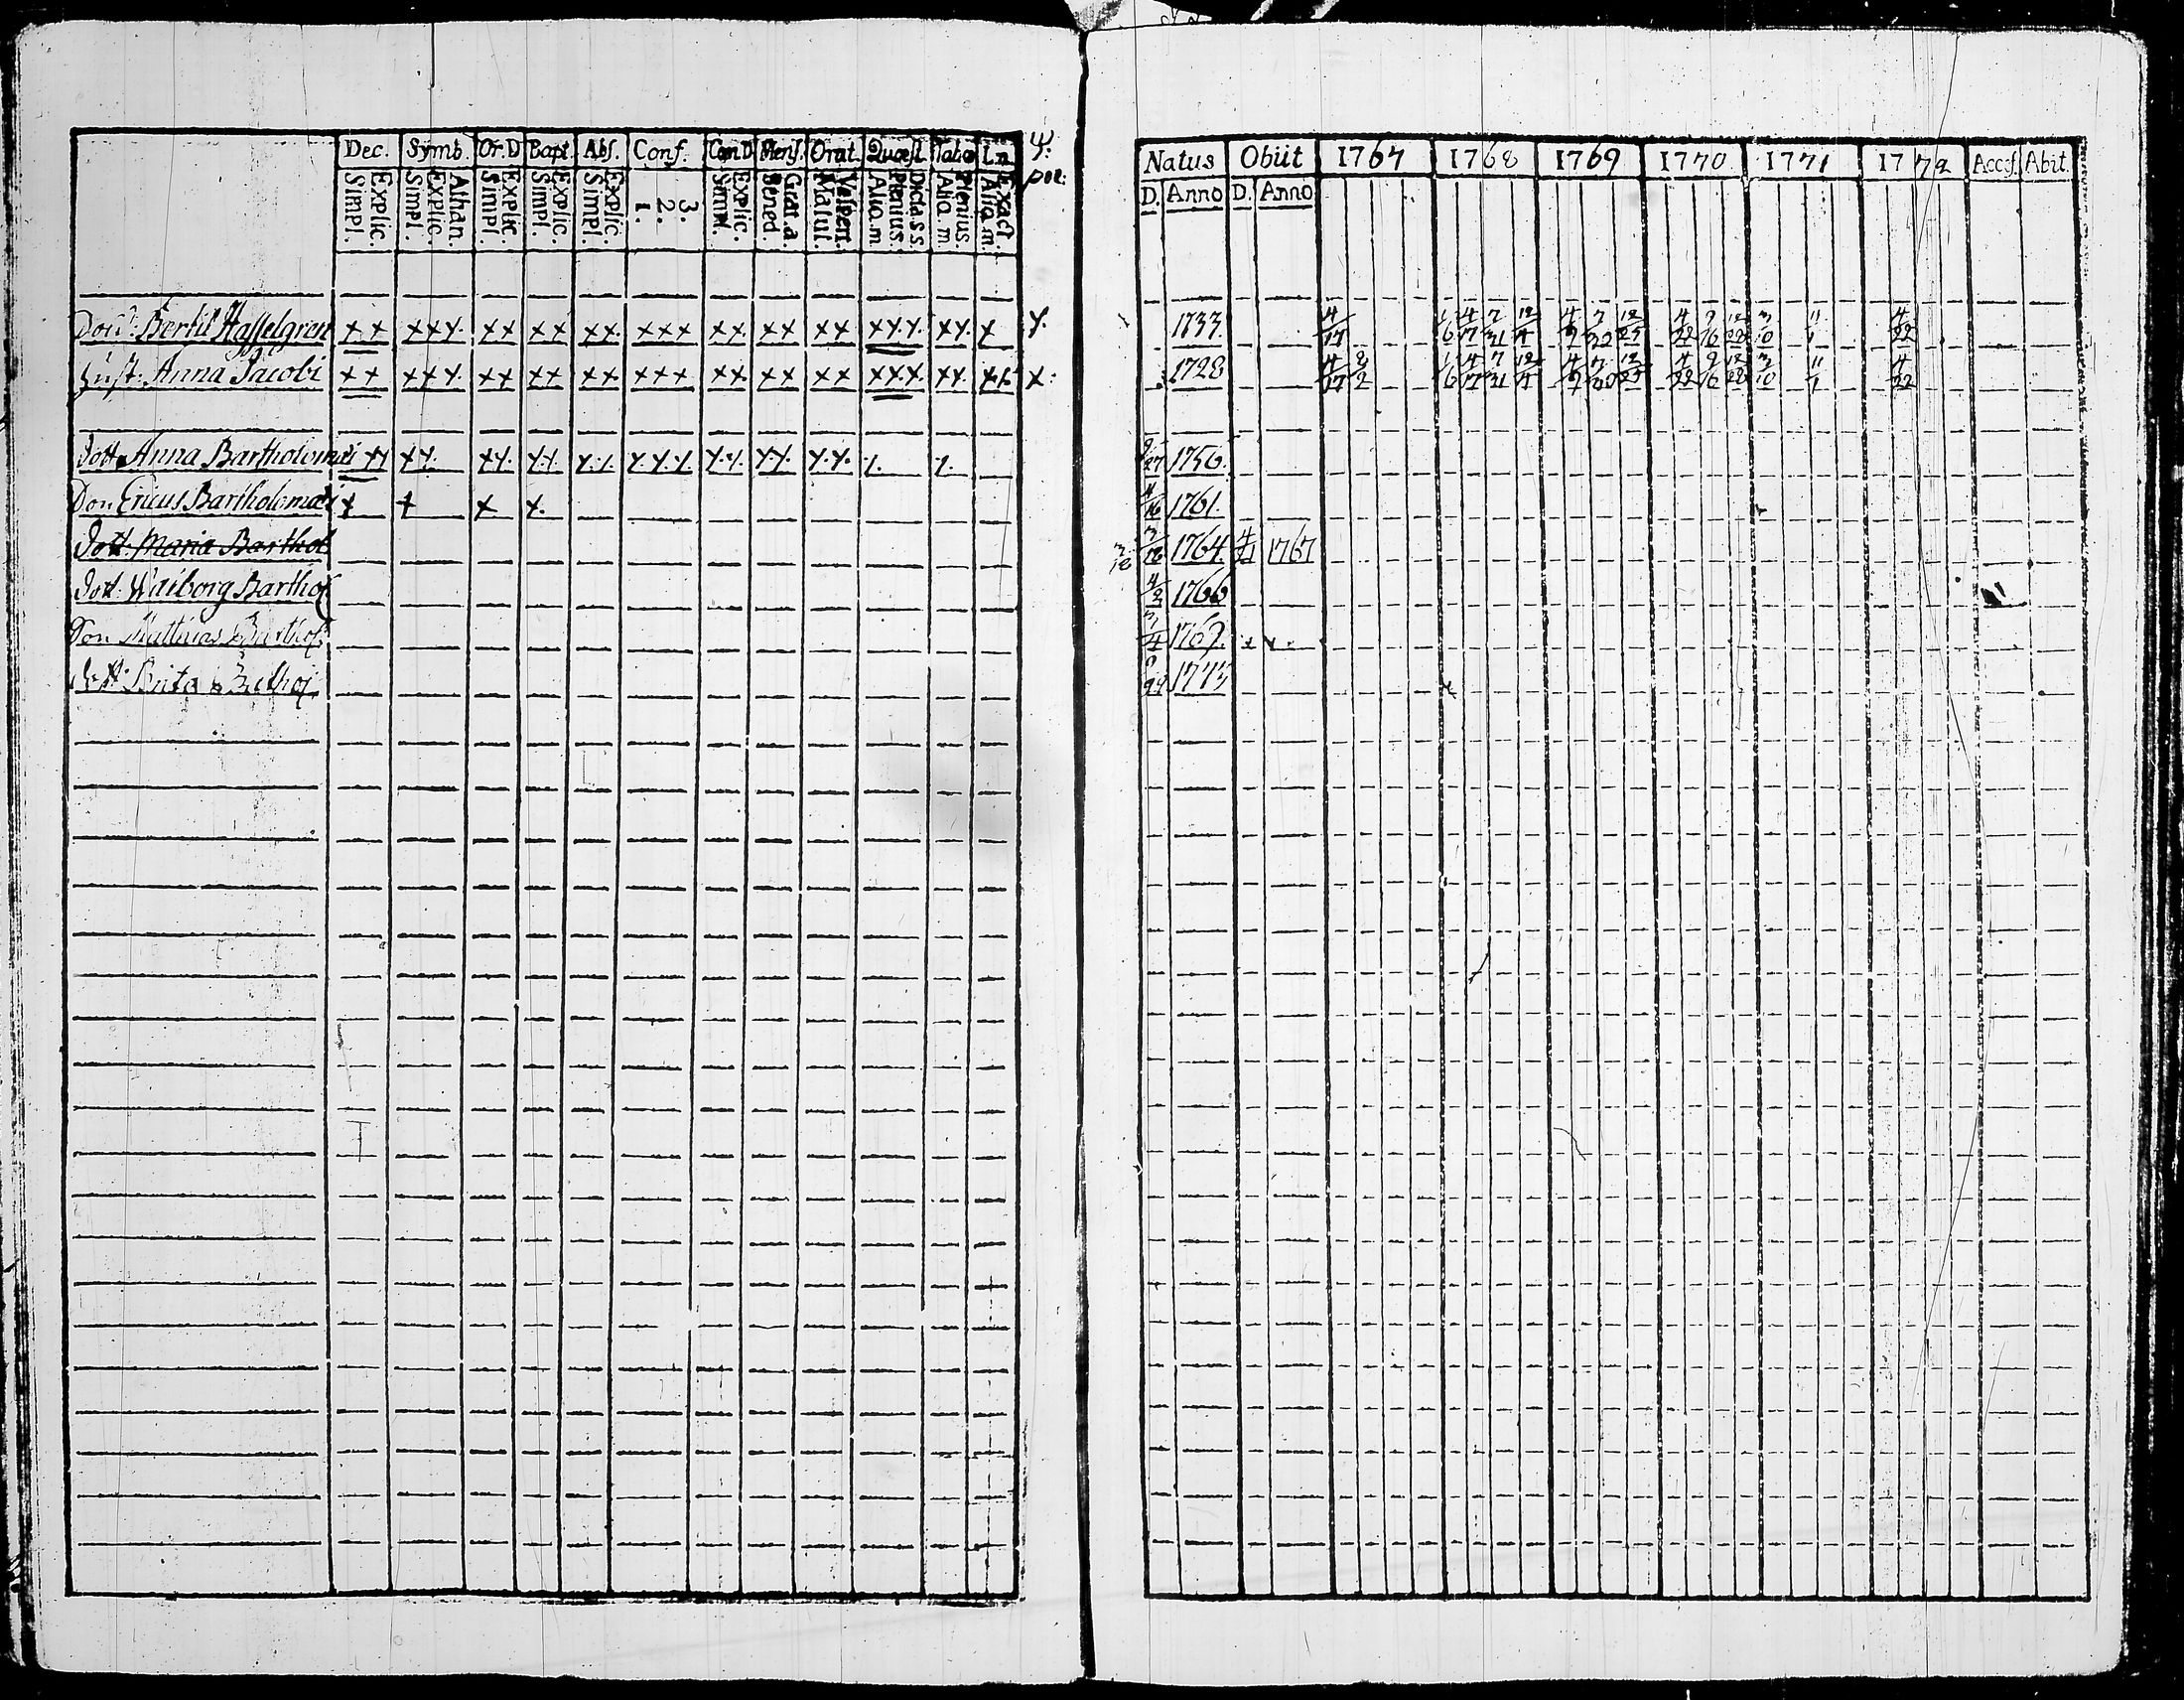 Dec. Symb. Or.D Bapt. Abs. Conf. Cœn D Mens. Orat. Quæst. Tabo Ln
Simpl. Explic. Simpl. Explic. Athan. Simpl. Explic. Simpl. Explic. Simpl. Explic. 1. 2. 3. Simpl. Explic. Bened. Grat. a. Matut. Vespert. Alio. m. Plenius. Dicta. s s. Alio. m Plenius. Aliq. m. Exact.
Bertil Hasselgren x x x x y. x x x x x x. x x x x x. x x x x x y y. x y. x y.
Hust. Anna Jacobi x x x x y. x x x x x x. x x x x x. x x x x x x x. x x. x x. x:
Dott. Anna Bartholomæi x y x y. x y. y. y. y. y. y. y. y. y. y. y. y. y. y. y. y.
Son Ericus Bartholomæi x x x x.
Dott. Maria Barthol
Dott. Walborg Barthol
Son Matthias Barthol
Dott: Brita
Natus Obiit 1767 1768 1769 1770 1771 1772 Access. Abit.
D. Anno D. Anno
1733. 4/17 1/6 4/17 7/31 12/4 4/9 7/30 12/27 4/22 9/16 12/28 3/10 11/1 4/22
1728 4/17 8/2 1/6 4/17 7/31 12/4 4/9 7/30 12/27 4/22 9/16 12/28 3/10 11/1 4/22
9/27 1756.
4/16 1761.
3/18 1764. 1767
4/3 1766
1769.
1773